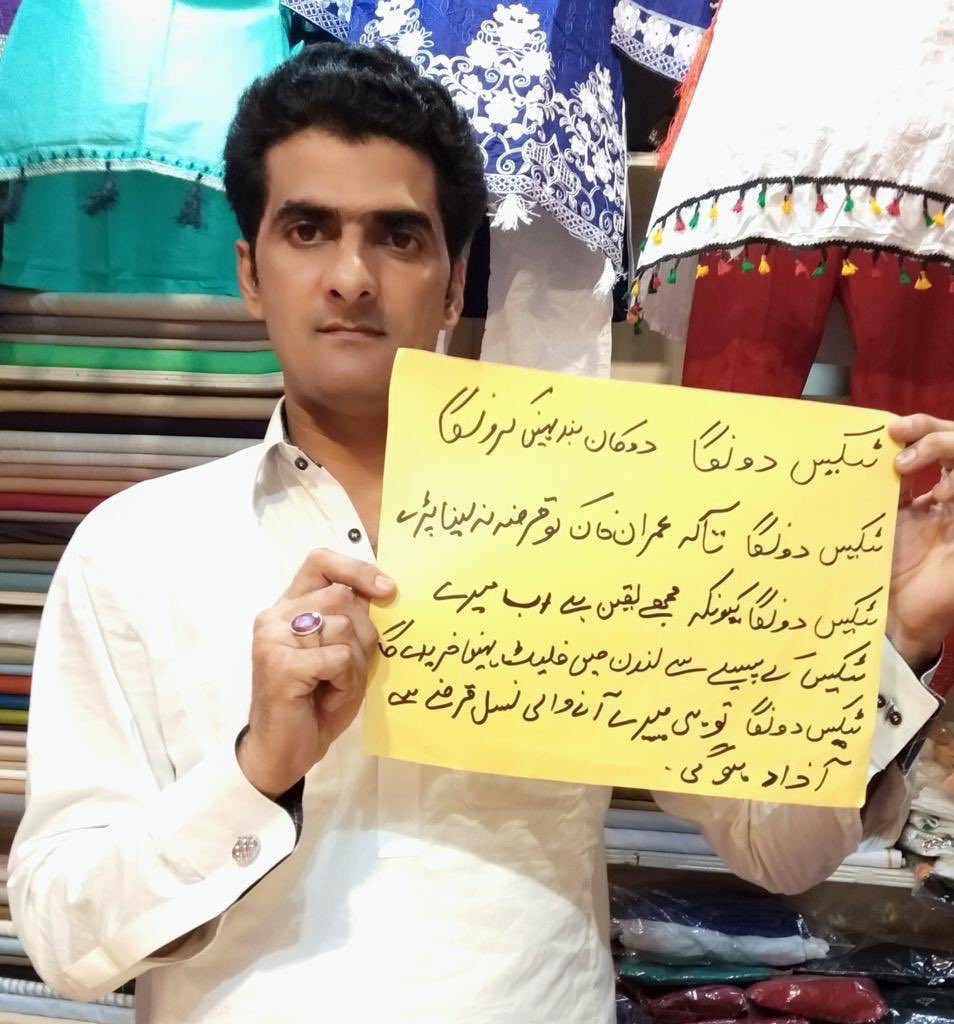 ٹیکیس دونگا دوکان بند نہیں کرونگا
ٹیکیس دونگا تاکہ عمران خان کو قرضہ نہ لینا پڑے
ٹیکیس دونگا کیونکہ مجھے یقین ہے اب میرے
ٹیکیس کے پیسے سے لندن میں فلیٹ نہیں خریدے گا
ٹیکیس دونگا تو ہی میرے آنے والی نسل قرضے سے
آذاد ہوگی.